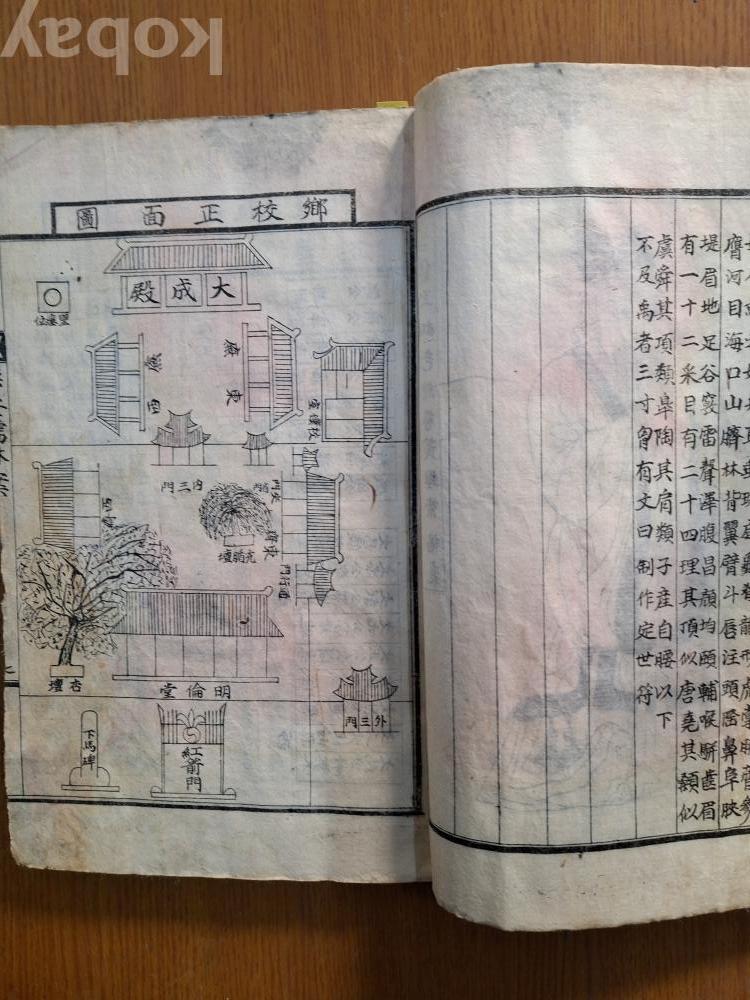 膺河目海口山臍林背翼臂斗唇注頭鼻阜脥
堤眉地足谷竅雷聲澤腹昌顏均頤輔喉駢齒眉
有一十二采目有二十四理其頂似唐堯其顙似
虞舜其項類皐陶其肩類子產自腰以下
不及禹者三寸胷有文曰制作定世符
鄉校正面圖
大成殿
望瘞位
東廡
西廡
內三門
東齋
西齋
杏壇
明倫堂
外三門
紅箭門
下馬碑
kobay